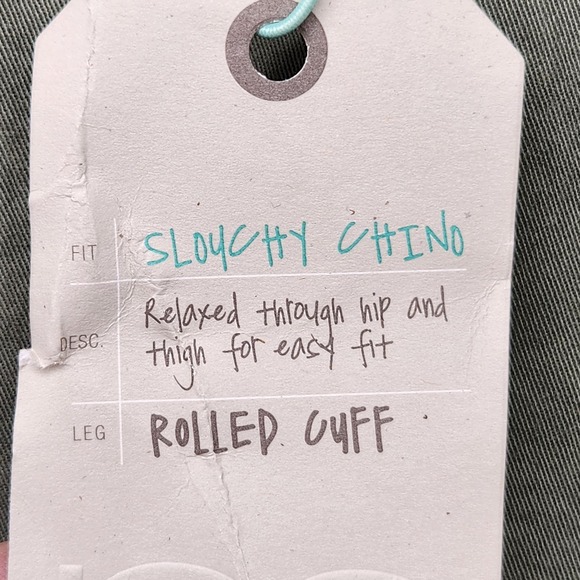 FIT SLOUCHY CHINO
Relaxed through hip and
DESC. thigh for easy fit
LEG ROLLED CUFF